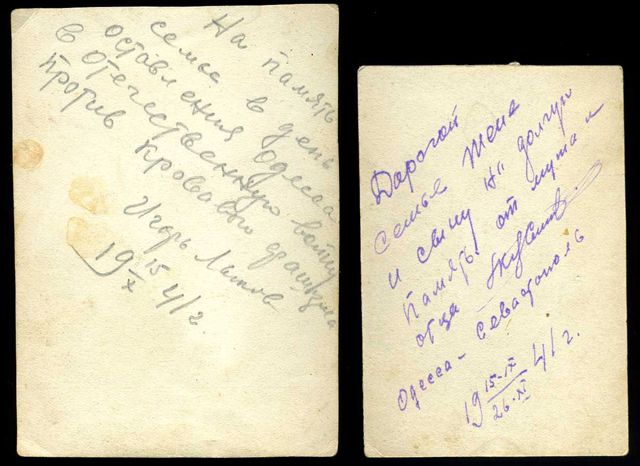 На память
семье в день
оставления Одесса
в отечественную войну
против кровавого фашизма
Игорь
19 15/X 41 г.
Дорогой
семье жене
и сыну на долгую
память от мужа и
отца
Одесса - Севастополь
19 15-IX/26-XI 41 г.